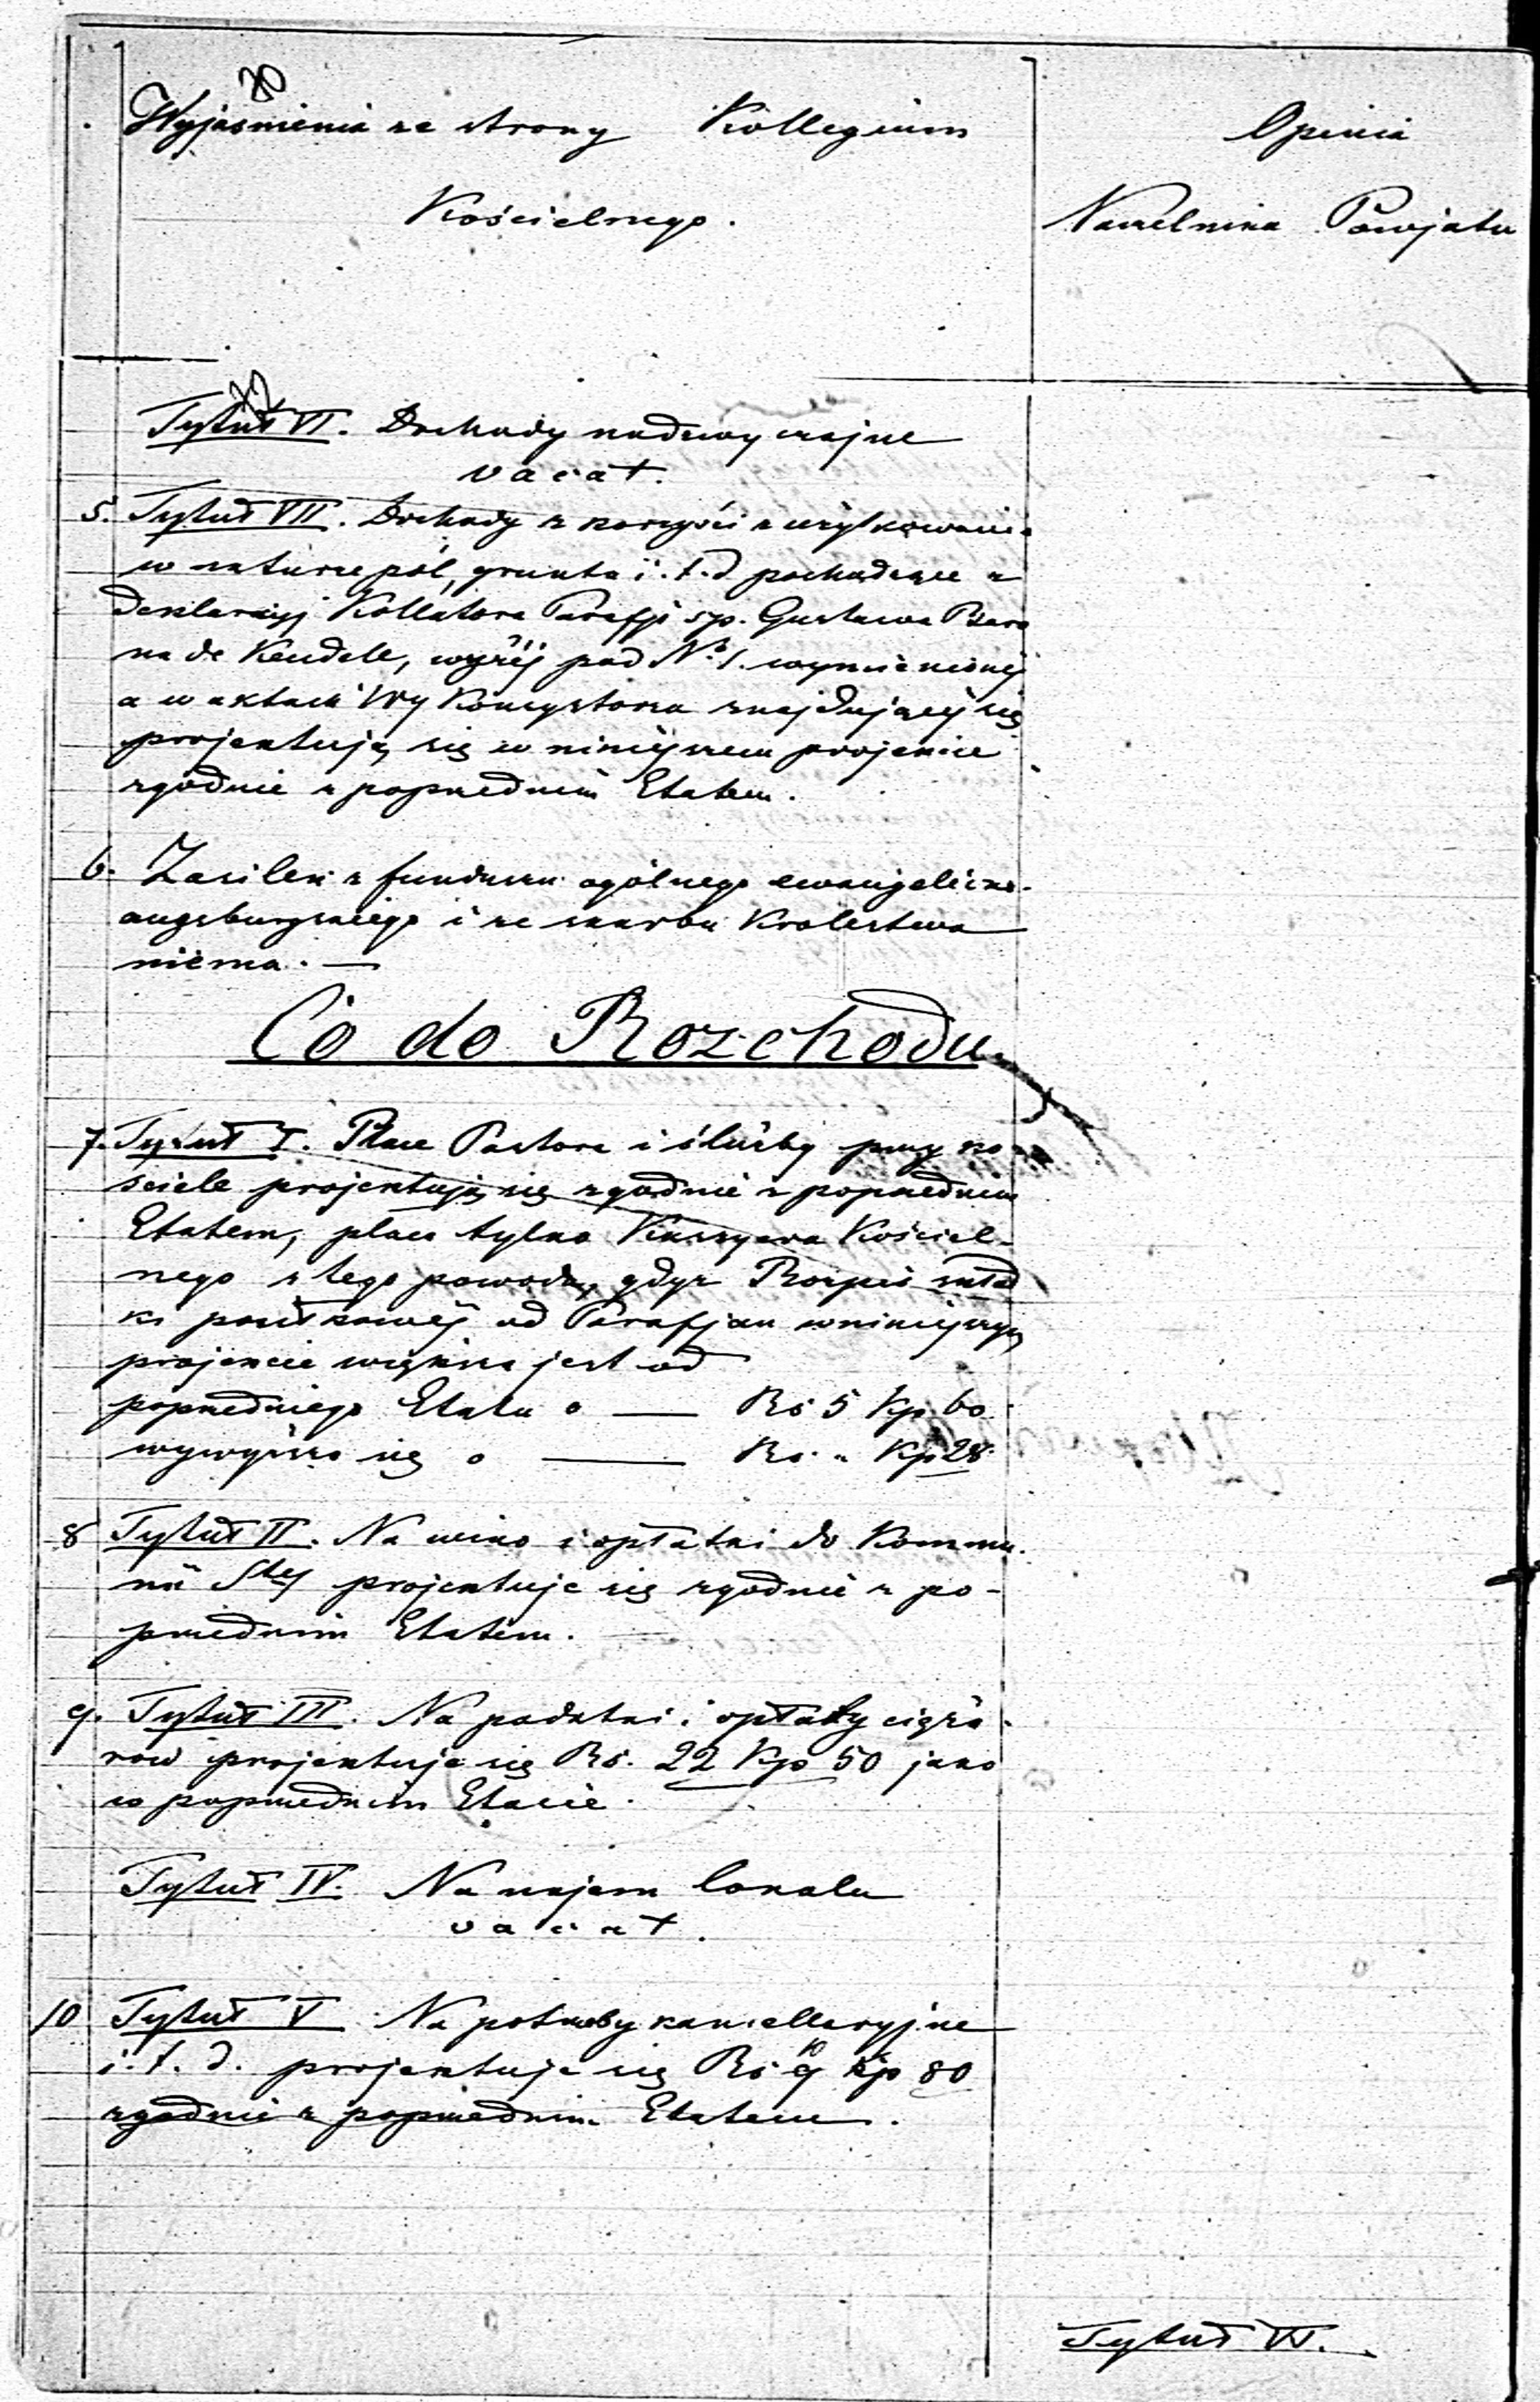 Wyjaśnienia ze strony Kollegium
Kościelnego.
Opinia
Naczelnika Powjatu
Tytuł VI. Dochody nadzwyczajne
vacat.
5. Tytuł VII. Dochody z korzyści z użytkowania
w naturze pól, grunta i.t.d pochodzące z
deklaracyj Kollatora Parafji ś.p. Gustawa Baro
na de Keudele, wyżéj pod No 1. wymienionéj
a w aktach Wy Konsystorza znajdującéj się
projektują się w niniéjszem projekcie
zgodnie z poprzednim Etatem.
6. Zasiłek z funduszu ogólnego ewangelicko-
augsburgskiego i ze skarbu Krolestwa
niéma. —
Co do Rozchodu
7. Tytuł I. Płace Pastora i służby przy ko
ściele projektują się zgodnie z poprzednim
Etatem, płaca tylko Kassyera Kościel-
nego z tego powodu, gdyż Rozpis skład
ki posiłkowéj od Parafjan w niniejszym
projekcie większa jest od
poprzedniego Etatu o — Rs 5 Kp. 60
wywyższa się o — Rs. " Kp 28
8 Tytuł II. Na wino i opłatki do Kommu-
nii Stéj projektuje się zgodnie z po-
przednim Etatem.
9. Tytuł III. Na podatki i opłaty cięża-
rów projektuje się Rs. 22 Kp 50 jako
w poprzednim Etacie.
Tytuł IV. Na najem lokalu
vacat.
10 Tytuł V Na potrzeby kancellaryjne
i.t.d. projektuje się Rs 9 Kp 80
zgodnie z poprzednim Etatem.
Tytuł VI.